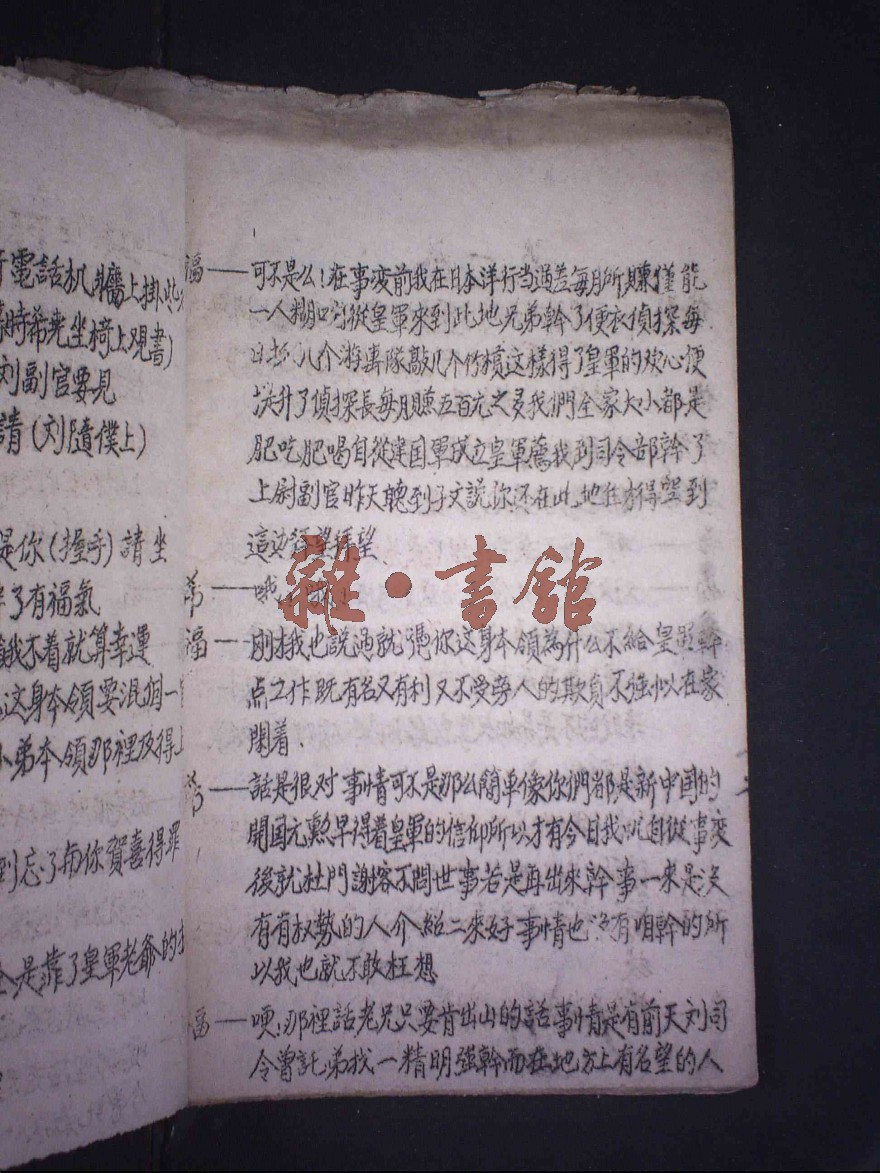 電話机牆上掛此
時希光坐椅上观書)
刘副官要見
請(刘隨僕上)
是你(握手)請坐
了有福氣
我不着就算幸運
这身本領要混個一
小弟本領那裡及得上
到忘了向你賀喜得罪
全是靠了皇軍老爺的
福——可不是么!在事变前我在日本洋行当过差每月所賺僅能
一人糊口勻從皇軍來到此地兄弟幹了便衣偵探每
日抓几个游击隊敲几个竹槓这樣得了皇軍的欢心便
升了偵探長每月賺五百元之多我們全家大小都是
肥吃肥喝自從建国軍成立皇軍薦我到司令部幹了
上尉副官昨天聽到子文說你还在此地住才得空到
這边拜望拜望
希——哦
雜·書館
福——刚才我也説過就憑你这身本領為什么不給皇軍幹
点工作既有名又有利又不受旁人的欺負不強似在家
閑着.
希——話是很对事情可不是那么簡单像你們都是新中国的
開国元勲早得着皇軍的信仰所以才有今日我呢自從事变
後就杜門謝客不問世事若是再出來幹事一來是没
有有权勢的人介紹二來好事情也没有咱幹的所
以我也就不敢枉想
福——哽!那裡話老兄只要肯出山的話事情是有前天刘司
令曾託弟找一精明強幹而在地方上有名望的人